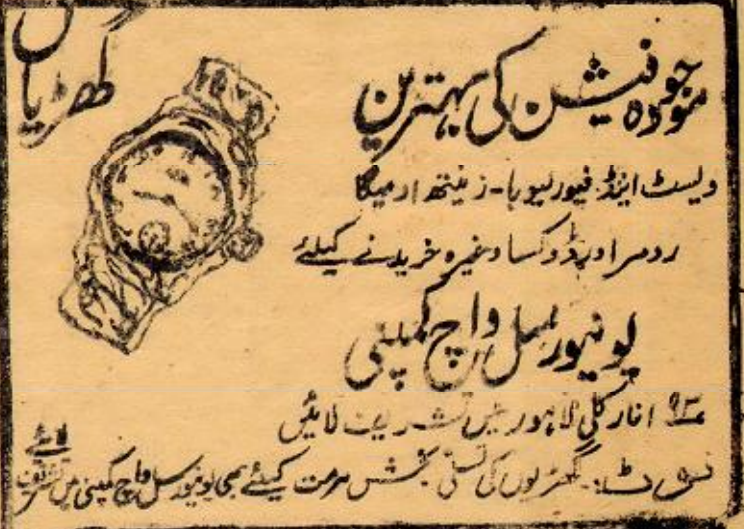 موجودہ فیشن کی بہترین گھڑیاں
ویسٹ اینڈ فیورلیوبا - زینتھ اومیگا
رومر اور ڈوکسا وغیرہ خریدنے کیلئے
یونیورسل واچ کمپنی
۹۳ انارکلی لاہور میں تشریف لائیں
نوٹ:- گھڑیوں کی تسلی بخش مرمت کیلئے بھی یونیورسل واچ کمپنی میں تشریف لائے